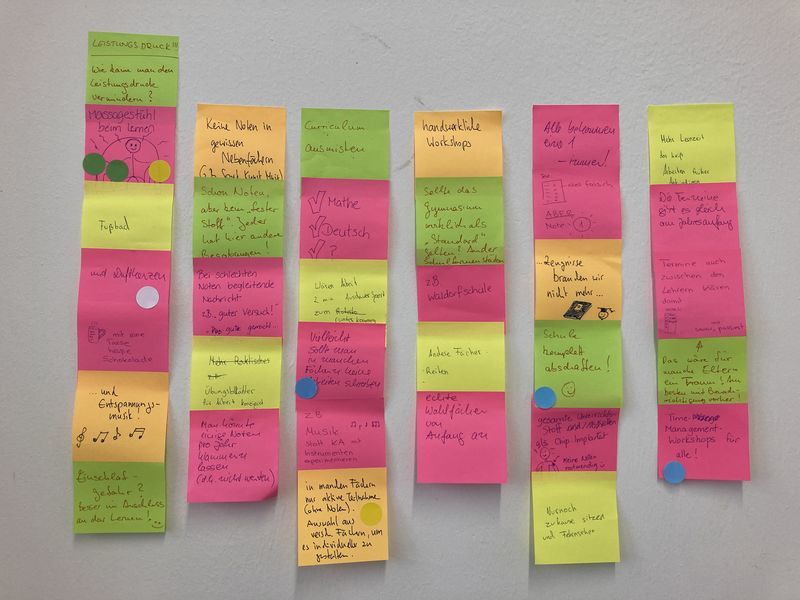 LEISTUNGSDRUCK!!!
Wie kann man den
Leistungsdruck
vermindern?
Massagestühl
beim lernen
Fußbad
und Duftkerzen
mit eine
Tasse
heiße
Schokolade
...und
Entspannungs-
musik.
Einschlaf-
gefahr?
Besser im Anschluss
an das Lernen!
Keine Noten in
gewissen
Nebenfächern
(z.B. Kunst Musik)
Schon Noten,
aber kein "fester
Stoff". Jeder
hat hier andere
Begabungen!
Bei schlechten
Noten begleitende
Nachricht
z.B. "guter Versuch!"
gute gemacht...
Mehr Praktisches
Übungsblätter
für Arbeit
Man könnte
einige Noten
pro Jahr
lassen
(d.h. nicht werten)
Curriculum
ausmisten
Mathe
Deutsch
?
2 min
zum
Vielleicht
sollt man
in manchen
Fächer keine
Arbeiten schreiben
z.B
Musik
statt KA mit
Instrumenten
experimentieren
in manchen Fächern
nur aktive Teilnahme
(ohne Noten).
Auswahl aus
versch. Fächern, um
es individueller zu
gestalten.
handwerkliche
Workshops
Sollte das
Gymnasium
wirklich als
"Standard"
gelten? Ander
Schulformen stärken
z.B.
Waldorfschule
Andere Fächer
-Reiten
echte
Wahlfächer
von
Anfang an
Alle bekommen
eine 1
-immer!
Test
alles falsch
ABER
Note: 1
...Zeugnisse
brauchen wir
nicht mehr...
Schule
komplett
abschaffen!
gesamte Unterrichts-
Stoff
als Chip-Implantat
keine Noten
notwendig
Nurnoch
zuhause sitzen
und Fernsehen
Mehr Lernzeit
Arbeiten früher
Die Termine
gibt es gleich
am Jahresanfang
Termine auch
zwischen den
Lehrern klären
damit
passt
Das wäre für
manche Eltern
ein Traum!
besten mit Benach-
richtigung vorher!
Time-
Management-
Workshops für
alle!